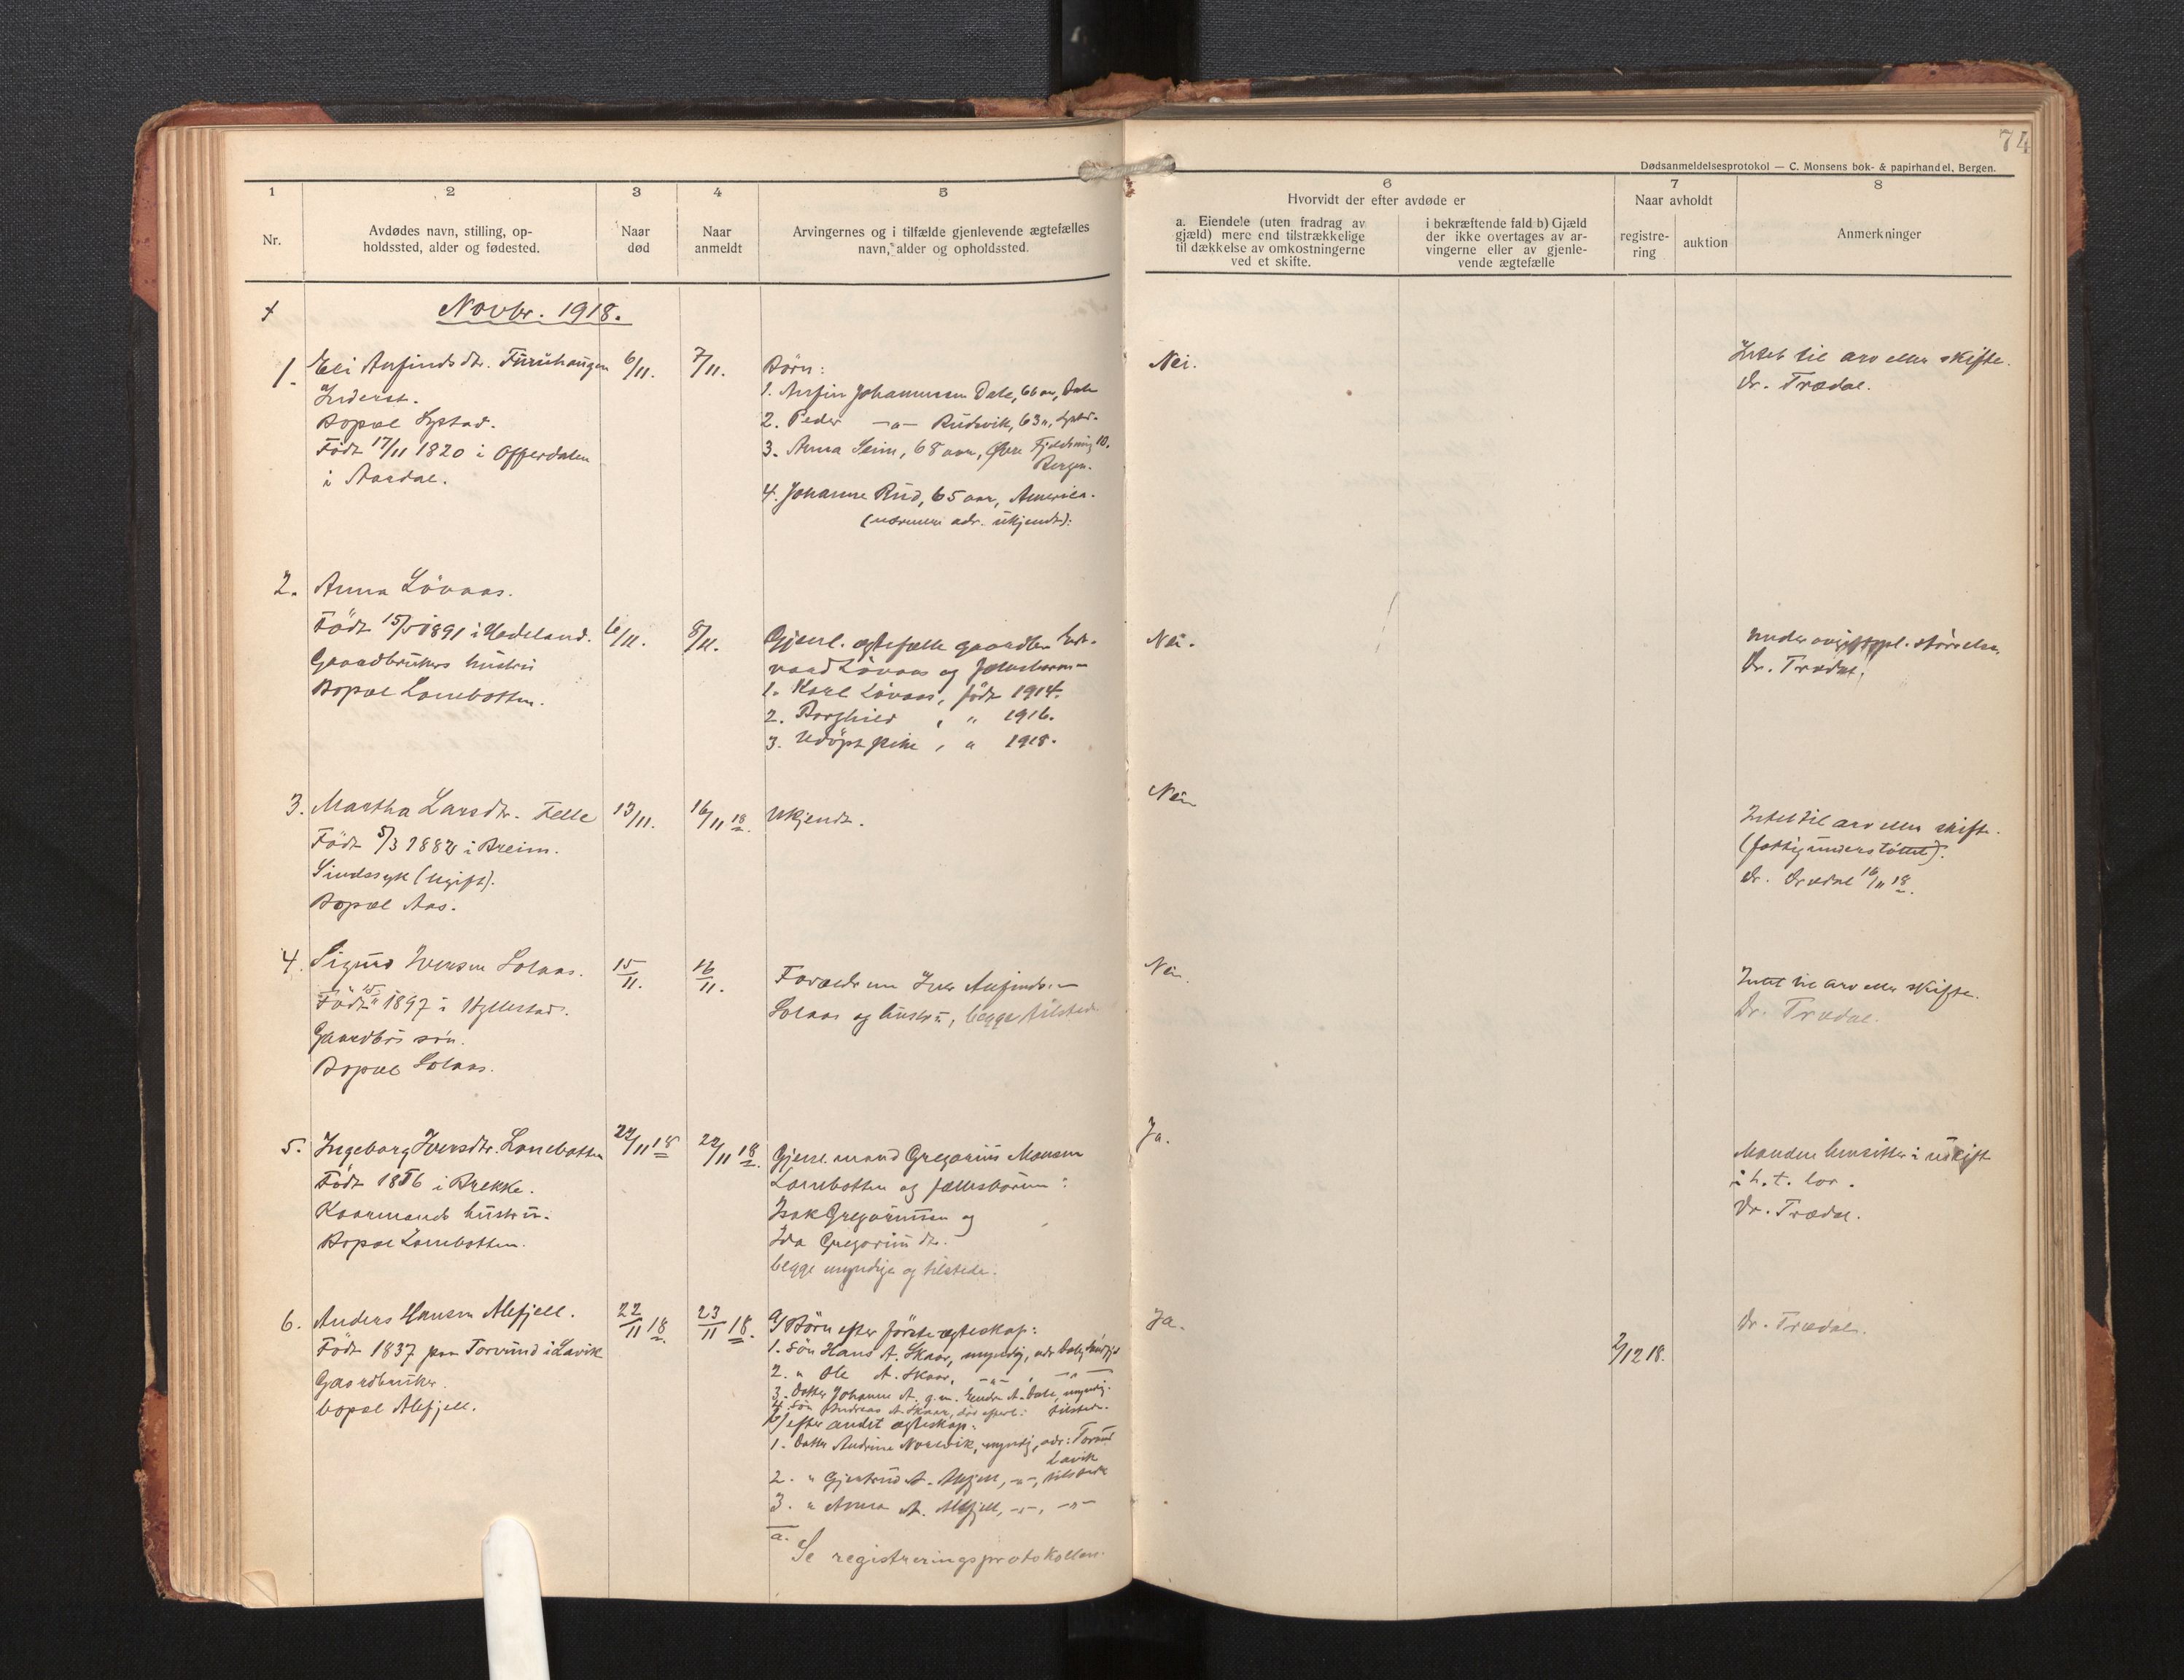 74
Dødsanmeldelsesprotokol — C. Monsens bok- & papirhandel, Bergen.
1
Nr.
2
Avdødes navn, stilling, op-
holdssted, alder og fødested.
3
Naar
død
4
Naar
anmeldt
5
Arvingernes og i tilfælde gjenlevende ægtefælles
navn, alder og opholdssted.
6
Hvorvidt der efter avdøde er
a. Eiendele (uten fradrag av
gjæld) mere end tilstrækkelige
til dækkelse av omkostningerne
ved et skifte.
i bekræftende fald b) Gjæld
der ikke overtages av ar-
vingerne eller av gjenle-
vende ægtefælle
7
Naar avholdt
registre-
ring
auktion
8
Anmerkninger
Novbr. 1918.
1.
Eli Anfindsdtr. Furuhaugen
Inderst.
Bopæl Systad.
Født 17/11 1820 i Offerdalen
i Aardal.
6/11.
7/11.
Børn:
1. Anfin Johannessen Dale, 66 aar, Dale
2. Peder —"— Rudsvik, 63 ",
3. Anna Seim, 68 aar, Øvre 10.
Bergen.
4. Johanne Rud, 65 aar, America.
(nærmere adr. ukjendt):
Nei.
Intet til arv eller skifte.
Dr. Trædal.
2.
Anna Løvaas.
Født 15/5 1891 i Hadeland.
Gaardbrukers hustru
Bopæl Lonebotten.
6/11.
8/11.
Gjenl. ægtefælle gaardbr.
Løvaas og fællesbarn
1. Karl Løvaas, født 1914.
2. Borghild , " 1916.
3. Udøpt pike , " 1918.
Nei.
Under størrelse.
Dr. Trædal.
3.
Martha Larsdtr. Felle
Født 5/3 1882 i Breim.
Sindssyk (ugift).
Bopæl Aas.
13/11.
16/11 18.
Ukjendt.
Nei
Intet til arv eller skifte.
(fattigunderstøttet).
Dr. Trædal 16/11 18.
4.
Sigurd Iversen Solaas.
Født 15/11 1897 i Hyllestad.
Gaardbrs søn.
Bopæl Solaas.
15/11.
16/11.
Forældrene Iver Anfinds.—
Solaas og hustru, begge tilstede
Nei.
Intet til arv eller skifte.
Dr. Trædal.
5.
Ingeborg Iversdtr. Lonebotten
Født 1856 i Brekke.
Kaarmands hustru.
Bopæl Lonebotten.
22/11 18
22/11 18.
Gjenl. mand Gregorius Monsen
Lonebotten og fællesbørn:
Isak Gregoriussen og
Ida Gregoriusdtr.
begge myndige og tilstede.
Ja.
Manden hensitter i uskift
i h. t. lov.
Dr. Trædal.
6.
Anders Hansen Alefjell.
Født 1837 paa Torvund i Lavik
Gaardbruker.
bopæl Alefjell.
22/11 18.
23/11 18.
a/ Børn efter første ægteskap:
1. Søn Hans A. Skaar, myndig, adr.
2. " Ole A. Skaar, —"— , —"—
3. Datter Johanne A. g.m. Endre A. Dale, myndig.
4. Søn Andreas A. Skaar, tilstede.
b/ efter andet ægteskap:
1. Datter Andrine Nordvik, myndig, adr: Torvund
Lavik
2. " Gjertrud A. Alefjell, —"—, tilstede
3. " Anna A. Alefjell, —"—, —"—
a.
Se registreringsprotokollen.
Ja.
2/12 18.
Dr. Trædal.